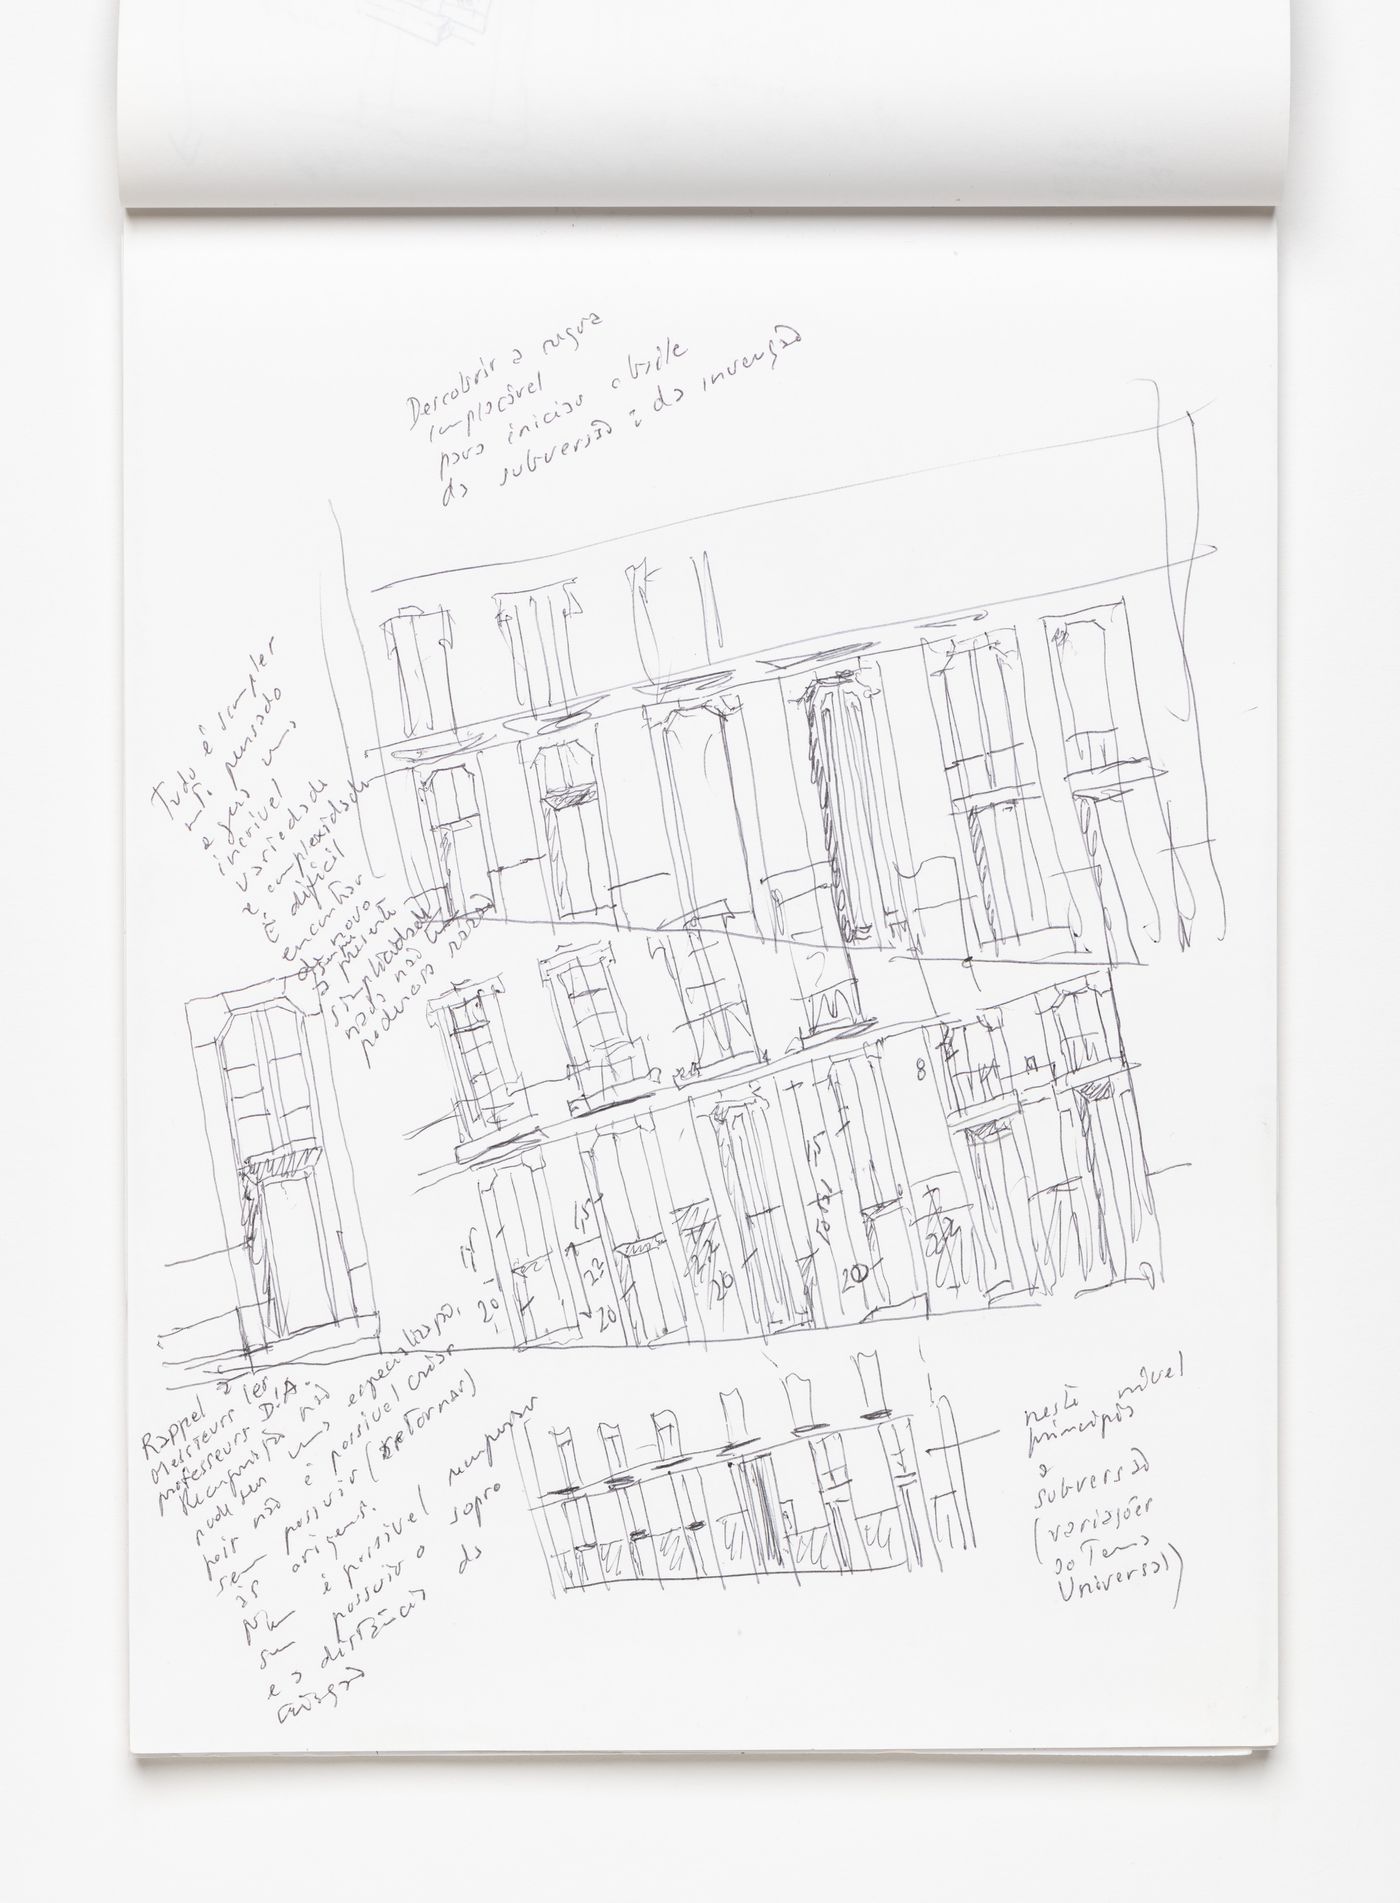 Descobrir a regra
implacável
para iniciar o baile
da subversão e da invenção
Tudo é simples
mto pensado
e gera uma
incrível
variedade
e complexidade
É difícil
encontrar
de novo
a presente
simplicidade
nada não
podemos
8
15
20
15
22
20
20
15
20
Rappel à
Messieurs les
professeurs D.A.
Recuperação não
pode ser uma especialização,
pois não é possível criar
sem possuir (retornar)
às origens.
Nem é possível recuperar
sem possuir o sopro
e a distância da
criação
neste nível
principia
a
subversão
(variações
ao Tema
Universal)